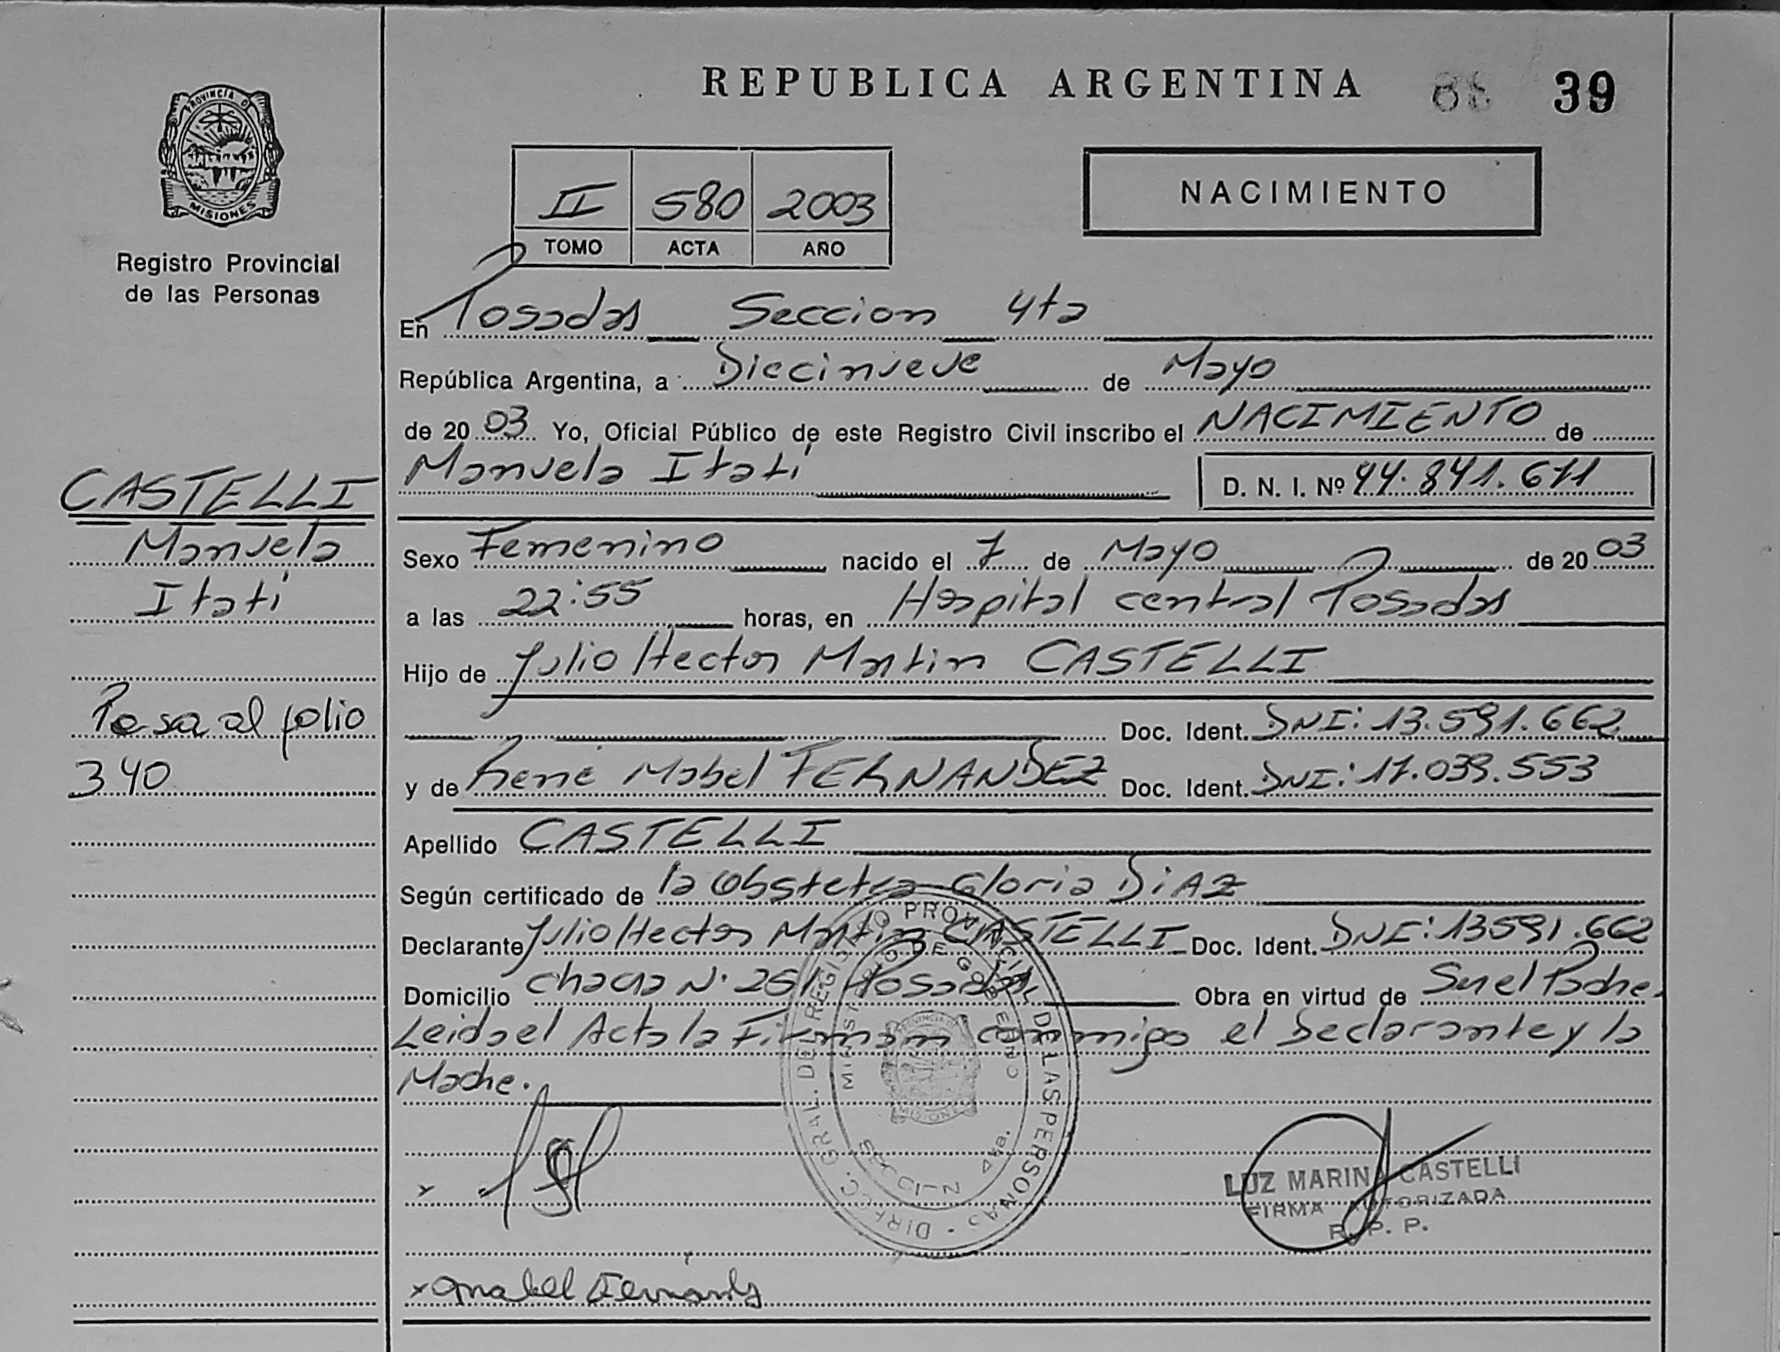 REPUBLICA ARGENTINA 39
PROVINCIA D
MISIONES
Registro Provincial
de las Personas
II 580 2003
TOMO ACTA AÑO
NACIMIENTO
En Posadas Seccion 4ta
República Argentina, a Diecinueve de Mayo
de 20 03 Yo, Oficial Público de este Registro Civil inscribo el NACIMIENTO de
Manuela Itatí D. N. I. Nº 44.841.611
CASTELLI
Manuela
Itatí
Sexo Femenino nacido el 7 de Mayo de 20 03
a las 22:55 horas, en Hospital central Posadas
Hijo de Julio Hector Martin CASTELLI
Doc. Ident. DNI: 13.591.662
Pasa al folio
340
y de Rene Mabel FERNANDEZ Doc. Ident. DNI: 17.039.553
Apellido CASTELLI
Según certificado de la Obstetra Gloria DIAZ
Declarante Julio Hector Martin CASTELLI Doc. Ident. DNI: 13591.662
Domicilio chacra N° 251 Posadas Obra en virtud de Ser el Padre.
Leida el Acta la Firman conmigo el Declarante y la
Madre.
DIRECC. GRAL. DEL REGISTRO PROVINCIAL DE LAS PERSONAS
MINISTERIO DE GOBIERNO
MISIONES
4ta.
LUZ MARINA CASTELLI
FIRMA AUTORIZADA
R. P. P.